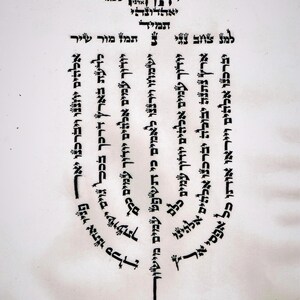 יאהדונהי
תמיד
למנ צחב נגי נ תמז מור שיר
אלהים יחננו ויברכנו יאר פניו אתנו סלה
לדעת בארץ דרכך בכל גוים ישועתך
יודוך עמים אלהים יודוך עמים כלם
ישמחו וירננו לאמים כי תשפט עמים מישור
יודוך עמים אלהים יודוך עמים כלם
ארץ נתנה יבולה יברכנו אלהים אלהינו
יברכנו אלהים וייראו אותו כל אפסי ארץ